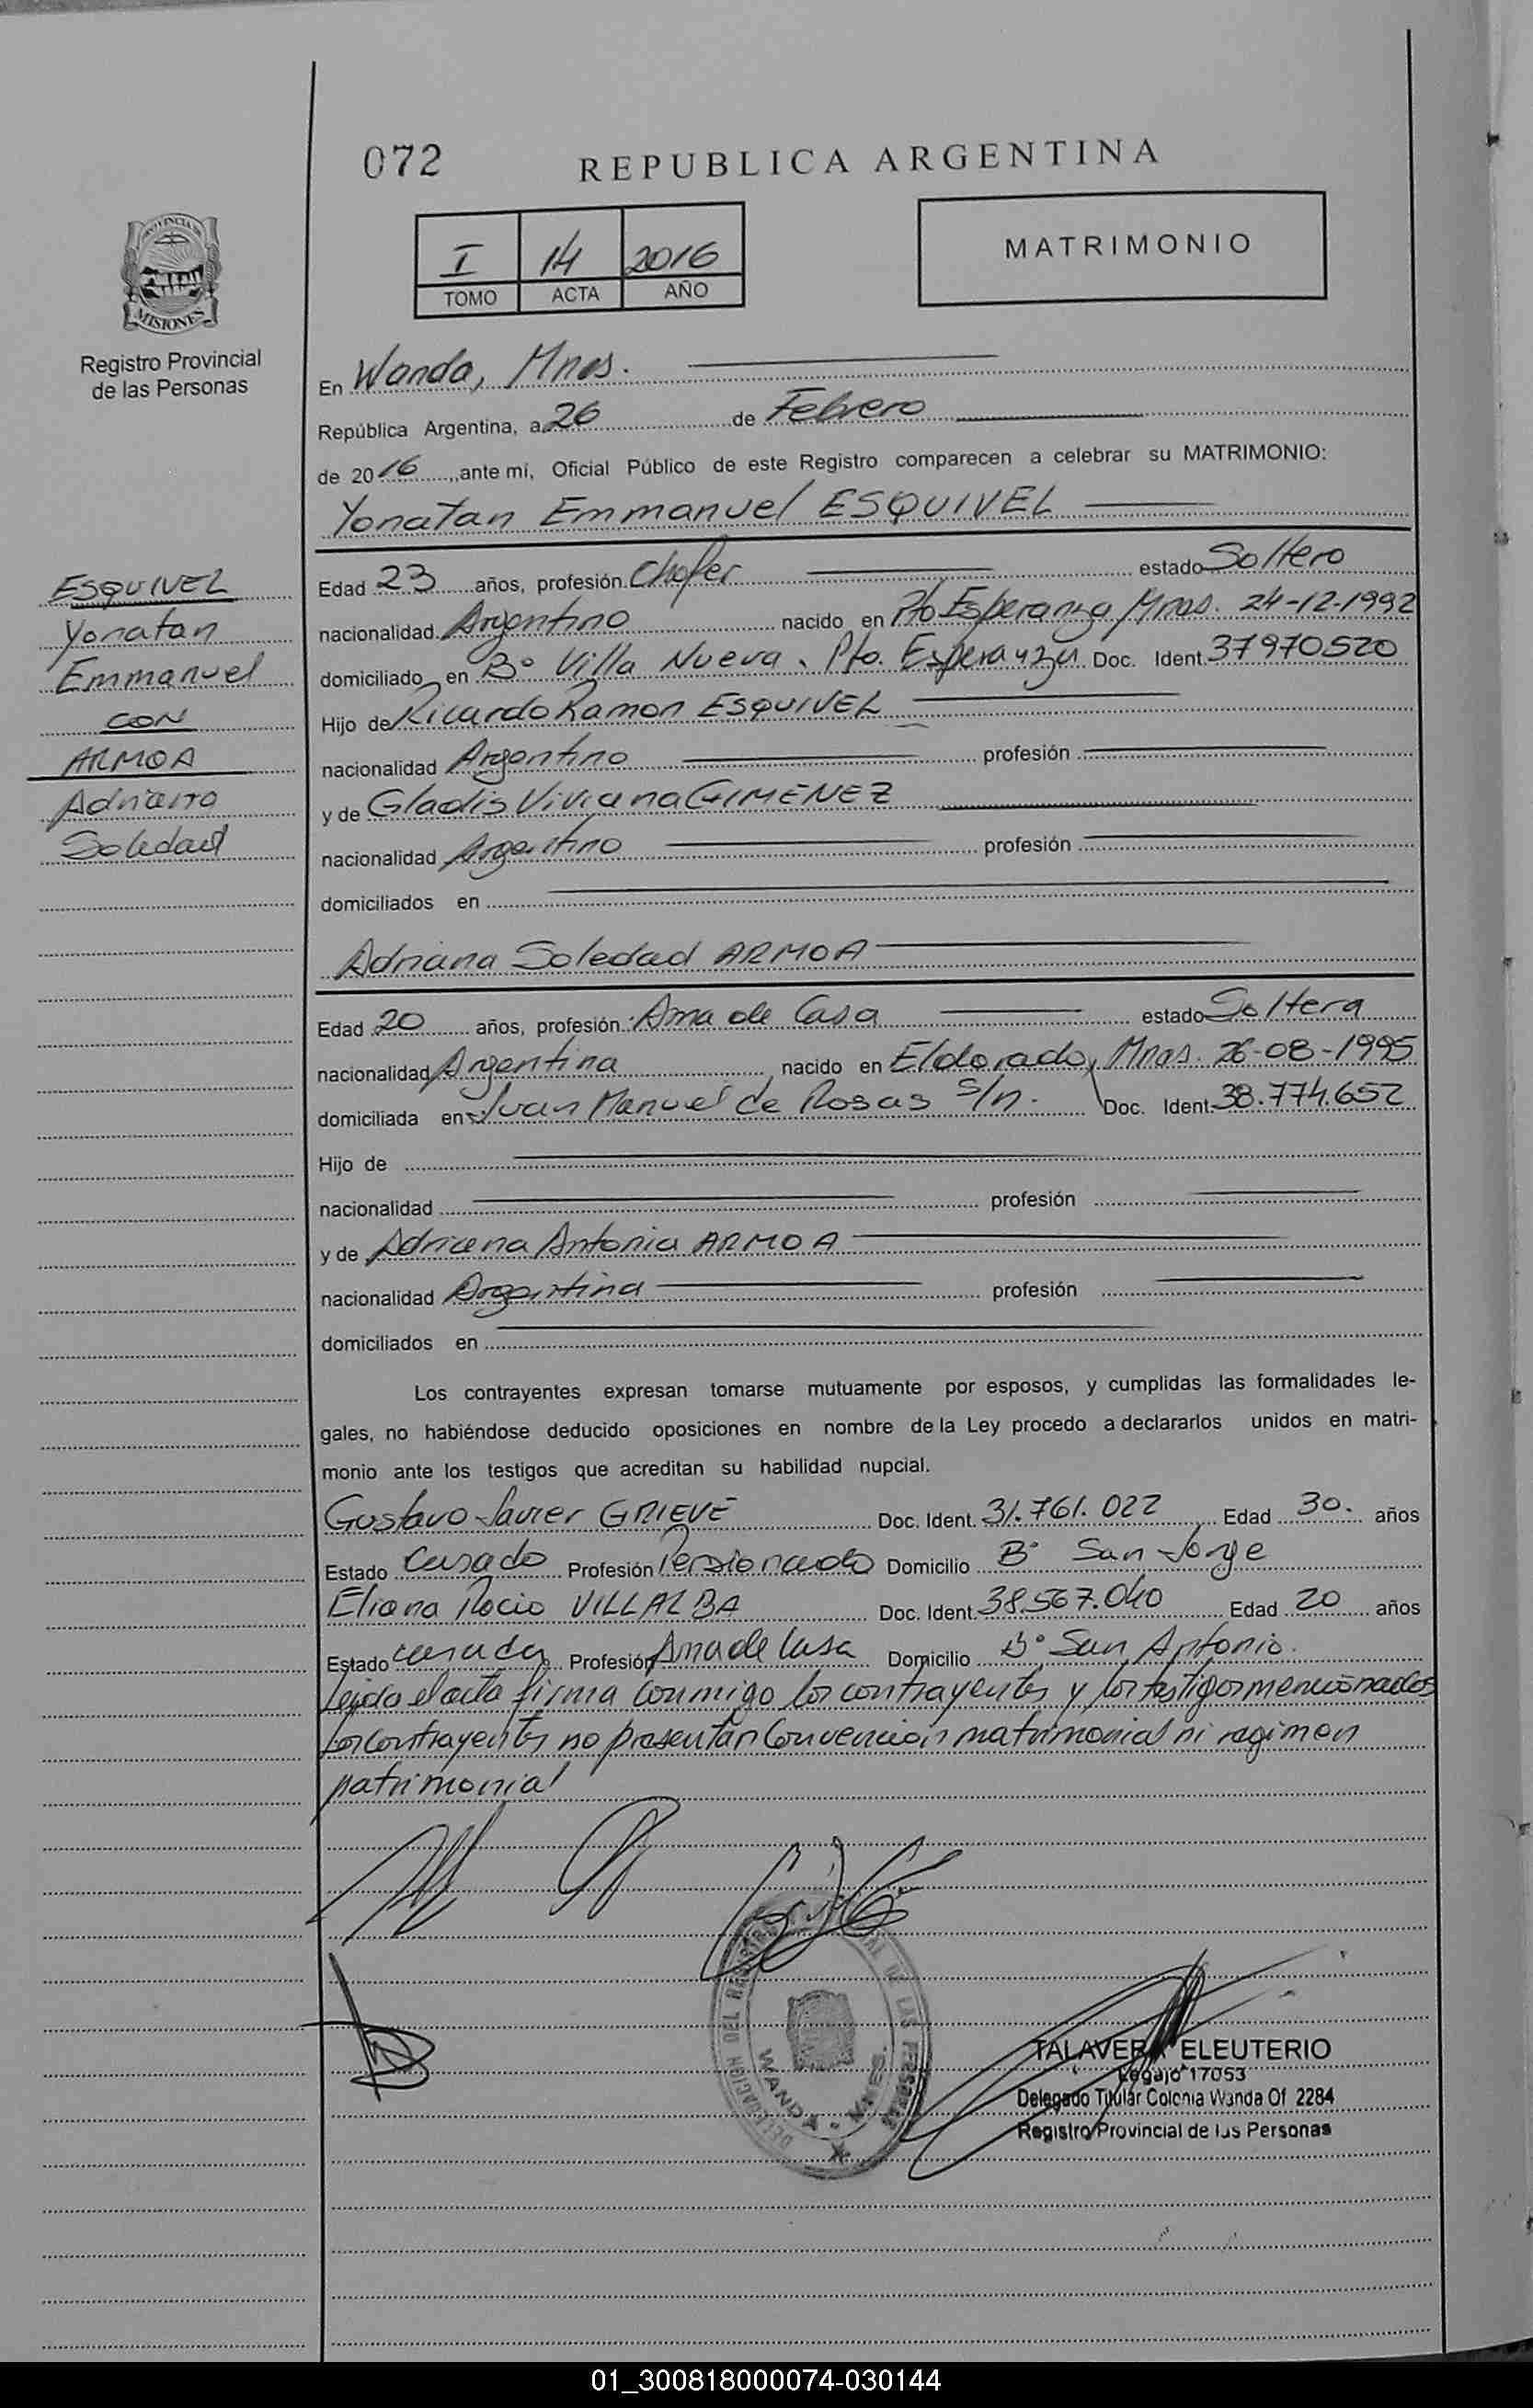 072
REPUBLICA ARGENTINA
I 14 2016
TOMO ACTA AÑO
MATRIMONIO
PROVINCIA DE
MISIONES
Registro Provincial
de las Personas
En Wanda, Mnes.
República Argentina, a 26 de Febrero
de 2016, ante mí, Oficial Público de este Registro comparecen a celebrar su MATRIMONIO:
Yonatan Emmanuel ESQUIVEL
ESQUIVEL
Yonatan
Emmanuel
CON
ARMOA
Adriana
Soledad
Edad 23 años, profesión Chofer estado Soltero
nacionalidad Argentino nacido en Pto Esperanza Mnes. 24-12-1992
domiciliado en B° Villa Nueva. Pto. Esperanza Doc. Ident. 37970520
Hijo de Ricardo Ramon ESQUIVEL
nacionalidad Argentino profesión
y de Gladis Viviana GIMENEZ
nacionalidad Argentino profesión
domiciliados en
Adriana Soledad ARMOA
Edad 20 años, profesión Ama de Casa estado Soltera
nacionalidad Argentina nacido en Eldorado, Mnes. 26-08-1995
domiciliada en Juan Manuel de Rosas S/n. Doc. Ident. 38.774.652
Hijo de
nacionalidad profesión
y de Adriana Antonia ARMOA
nacionalidad Argentina profesión
domiciliados en
Los contrayentes expresan tomarse mutuamente por esposos, y cumplidas las formalidades le-
gales, no habiéndose deducido oposiciones en nombre de la Ley procedo a declararlos unidos en matri-
monio ante los testigos que acreditan su habilidad nupcial.
Gustavo Javier GRIEVE Doc. Ident. 31.761.022 Edad 30. años
Estado Casado Profesión Pensionado Domicilio B° San Jorge
Eliana Rocio VILLALBA Doc. Ident. 38.567.040 Edad 20 años
Estado casada Profesión Ama de Casa Domicilio B° San Antonio.
Leida el acta firma conmigo los contrayentes y los testigos mencionados
Los contrayentes no presentan Convencion matrimonial ni regimen
patrimonial
DELEGACION DEL REGISTRO PROVINCIAL DE LAS PERSONAS
WANDA - MNES.
TALAVERA ELEUTERIO
Legajo 17053
Delegado Titular Colonia Wanda Of 2284
Registro Provincial de las Personas
01_300818000074-030144